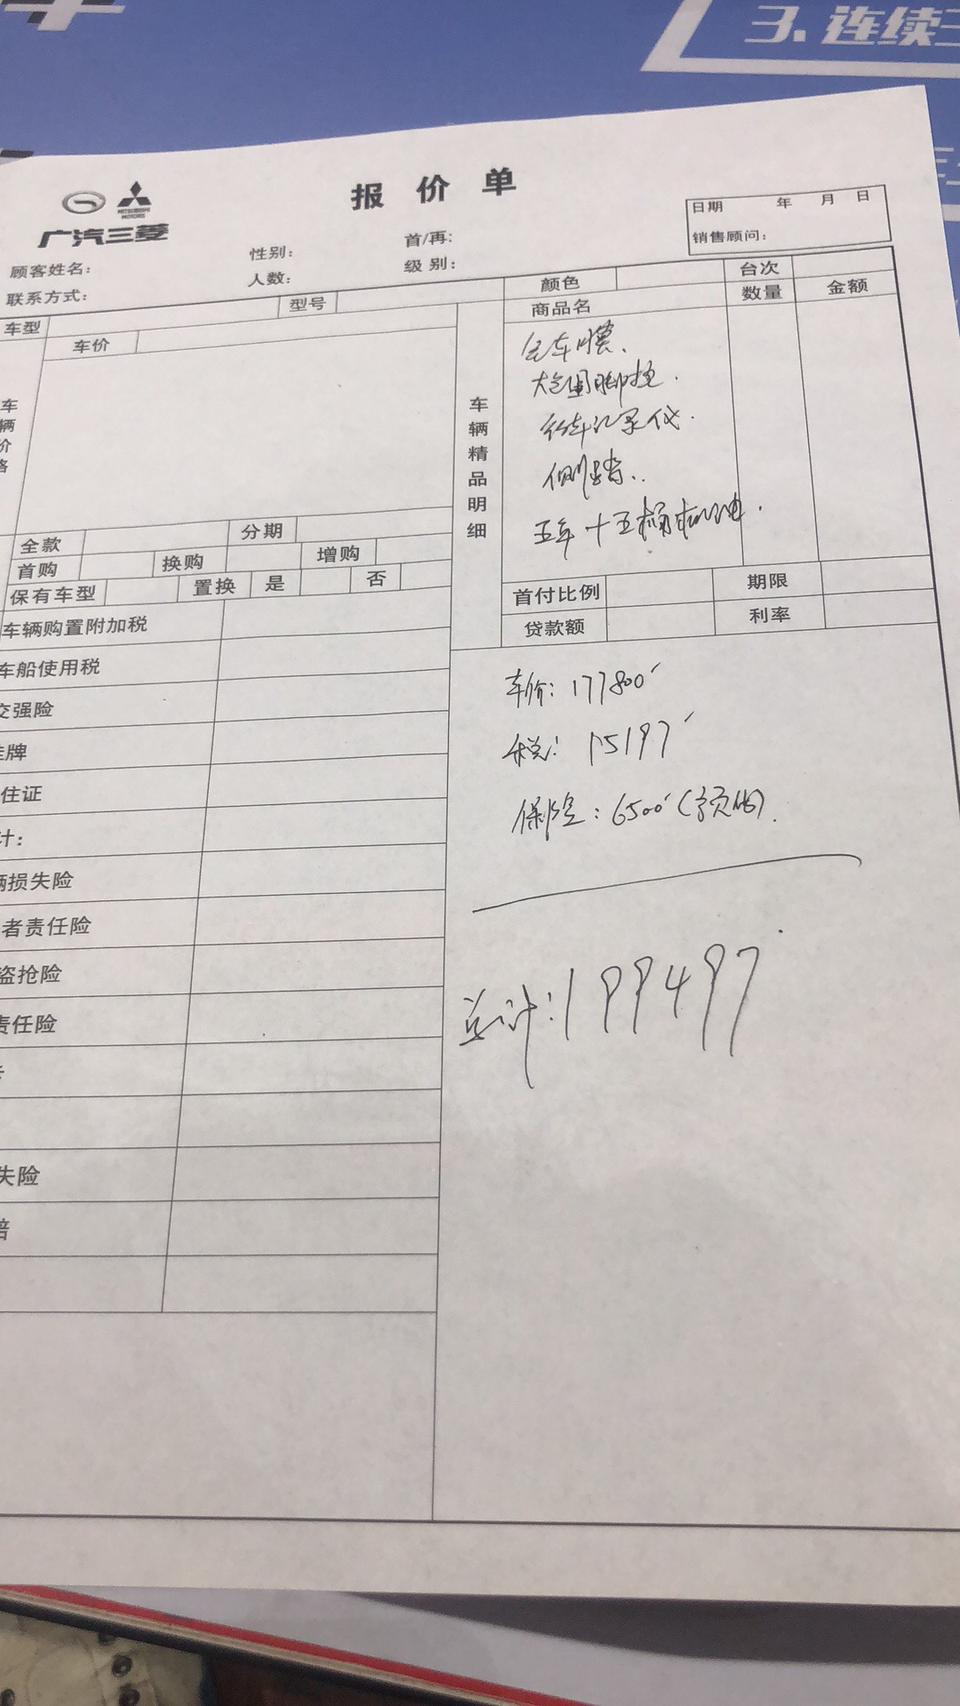 3. 连续三
广汽三菱
MITSUBISHI MOTORS
报价单
日期 年 月 日
销售顾问:
顾客姓名: 性别: 首/再:
联系方式: 人数: 级别:
车型 型号 颜色 台次
车价 商品名 数量 金额
车辆价格
车辆精品明细
全车膜.
大包围脚垫.
行车记录仪.
侧踏..
五年十五桶机油.
全款 分期
首购 换购 增购
保有车型 置换 是 否
首付比例 期限
贷款额 利率
车辆购置附加税
车船使用税
交强险
牌
住证
计:
损失险
者责任险
盗抢险
责任险
失险
赔
车价: 177800
税: 15197
保险: 6500 (预估).
总计: 199497